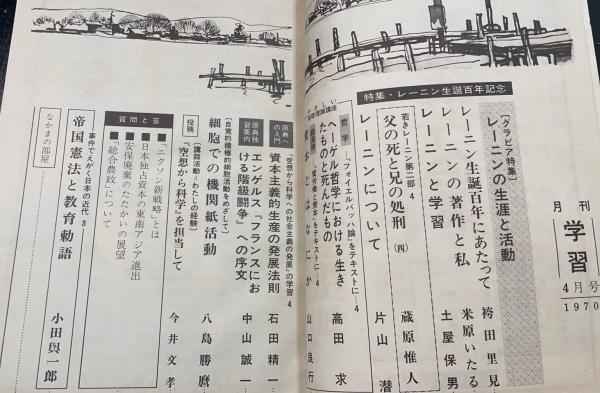 月刊
学習
4月号
1970
特集・レーニン生誕百年記念
〔グラビア特集〕
レーニンの生涯と活動
レーニン生誕百年にあたって
袴田里見
レーニンの著作と私
米原いたる
レーニンと学習
土屋保男
若きレーニン第二部 4
父の死と兄の処刑(四)
蔵原惟人
レーニンについて
片山潜
哲学
「フォイエルバッハ論」をテキストに―4
ヘーゲル哲学における生きたものと死んだもの
高田求
「賃労働と資本」をテキストに―4
山口良行
原典への入門
「空想から科学への社会主義の発展」の学習 4
資本主義的生産の発展法則
石田精一
原典独習案内
エンゲルス『フランスにおける階級闘争』への序文
中山誠一
〔自覚的積極的細胞活動をめざして〕
細胞での機関紙活動
八島勝麿
投稿
〔講師活動・わたしの経験〕
『空想から科学』を担当して
今井文孝
質問と答
■「ニクソン新戦略」とは
■日本独占資本の東南アジア進出
■安保廃棄のたたかいの展望
■「総合農政」について
事件でえがく日本の近代 3
帝国憲法と教育勅語
小田與一郎
なかまの部屋